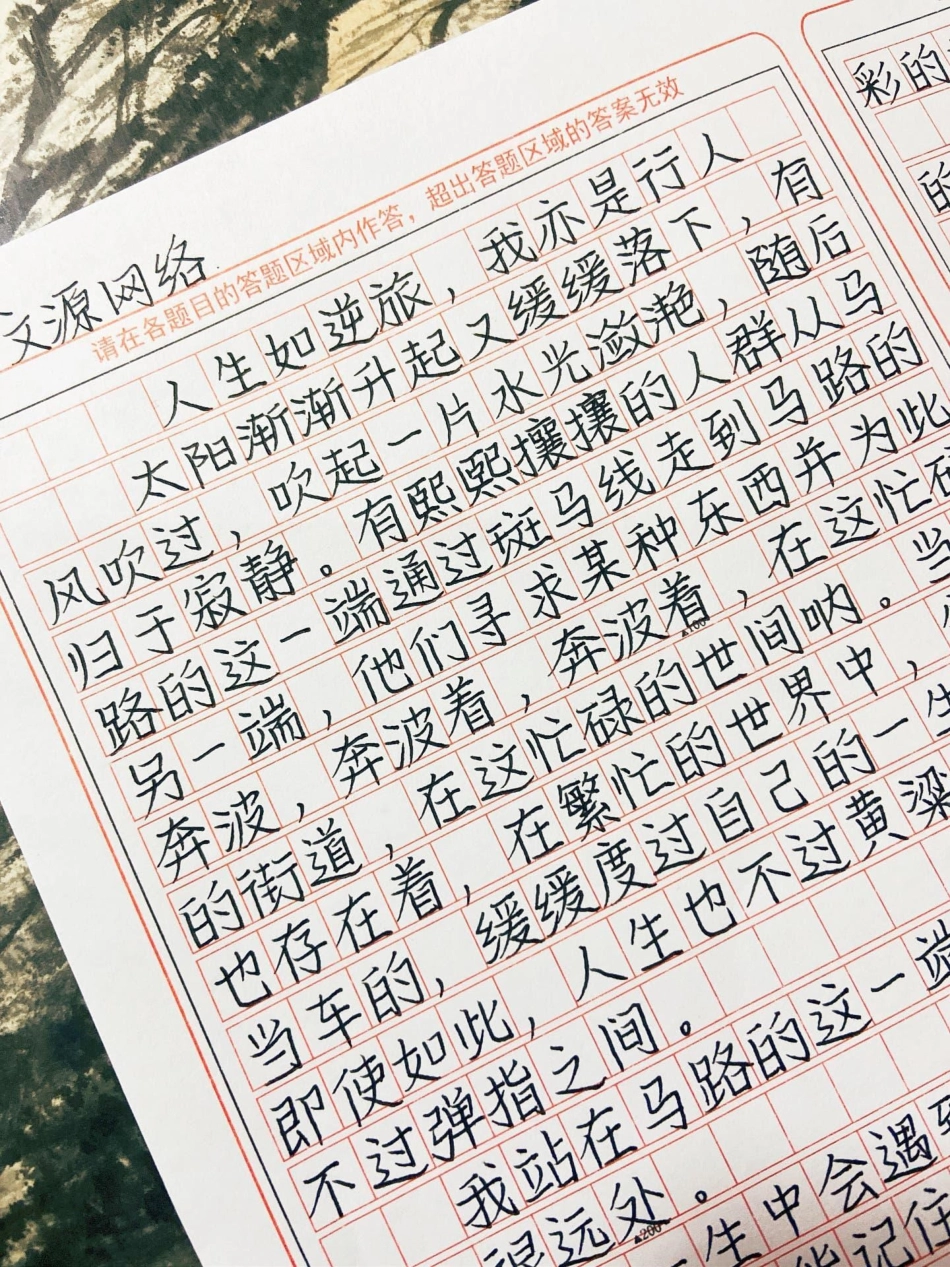 文源网络
请在各题目的答题区域内作答，超出答题区域的答案无效
人生如逆旅，我亦是行人
太阳渐渐升起又缓缓落下，有
风吹过，吹起一片水光潋滟，随后
归于寂静。有熙熙攘攘的人群从马
路的这一端通过斑马线走到马路的
另一端，他们寻求某种东西并为此
奔波，奔波着，奔波着，在这忙碌
▲100
的街道，在这忙碌的世间呐。当
也存在着，在繁忙的世界中，
当车的，缓缓度过自己的一生
即使如此，人生也不过黄粱
不过弹指之间。
我站在马路的这一端
很远处。
▲200
生中会遇到
能记住
彩的
的